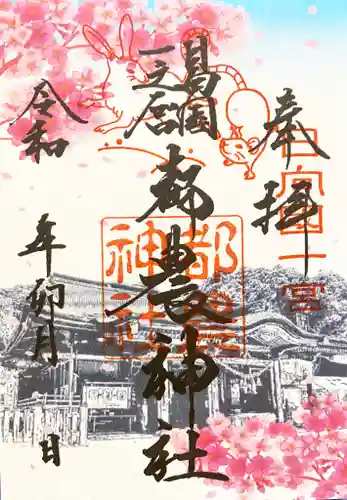 奉拝
日向国一宮
日向國
一之宮
都農神社
都農
神社
令和 年卯月 日